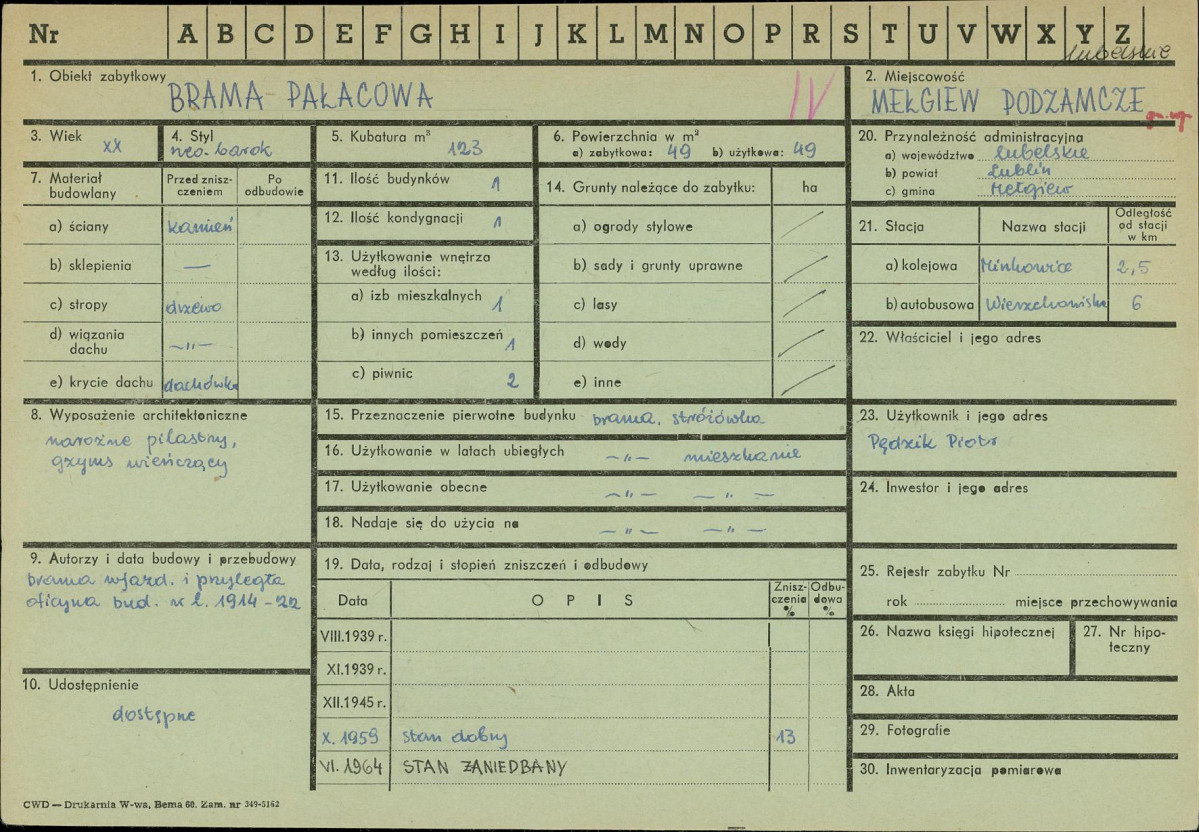 Nr A B C D E F G H I J K L M N O P R S T U V W X Y Z
lubelskie
1. Obiekt zabytkowy
BRAMA PAŁACOWA
IV
2. Miejscowość
MEŁGIEW PODZAMCZE
3. Wiek
XX
4. Styl
neo-barok
5. Kubatura m³
123
6. Powierzchnia w m²
a) zabytkowa: 49 b) użytkowa: 49
20. Przynależność administracyjna
a) województwo lubelskie
b) powiat Lublin
c) gmina Mełgiew
7. Materiał budowlany
Przed zniszczeniem
Po odbudowie
a) ściany kamień
b) sklepienia —
c) stropy drzewo
d) wiązania dachu —„—
e) krycie dachu dachówka
11. Ilość budynków 1
12. Ilość kondygnacji 1
13. Użytkowanie wnętrza
według ilości:
a) izb mieszkalnych 1
b) innych pomieszczeń 1
c) piwnic 2
14. Grunty należące do zabytku: ha
a) ogrody stylowe /
b) sady i grunty uprawne /
c) lasy /
d) wody /
e) inne /
21. Stacja Nazwa stacji Odległość od stacji w km
a) kolejowa Minkowice 2,5
b) autobusowa Wierzchowiska 6
22. Właściciel i jego adres
8. Wyposażenie architektoniczne
narożne pilastry,
gzyms wieńczący
15. Przeznaczenie pierwotne budynku brama, stróżówka
16. Użytkowanie w latach ubiegłych —„— mieszkanie
17. Użytkowanie obecne —„— —„—
18. Nadaje się do użycia na —„— —„—
23. Użytkownik i jego adres
Pędzik Piotr
24. Inwestor i jego adres
9. Autorzy i data budowy i przebudowy
brama wjazd. i przyległa
oficyna bud. w l. 1914-22
19. Data, rodzaj i stopień zniszczeń i odbudowy
Data OPIS Zniszczenia % Odbudowa %
VIII.1939 r.
XI.1939 r.
XII.1945 r.
X. 1959 stan dobry 13
VI. 1964 STAN ZANIEDBANY
25. Rejestr zabytku Nr
rok miejsce przechowywania
26. Nazwa księgi hipotecznej
27. Nr hipoteczny
10. Udostępnienie
dostępne
28. Akta
29. Fotografie
30. Inwentaryzacja pomiarowa
CWD — Drukarnia W-wa, Bema 60. Zam. nr 349-5162